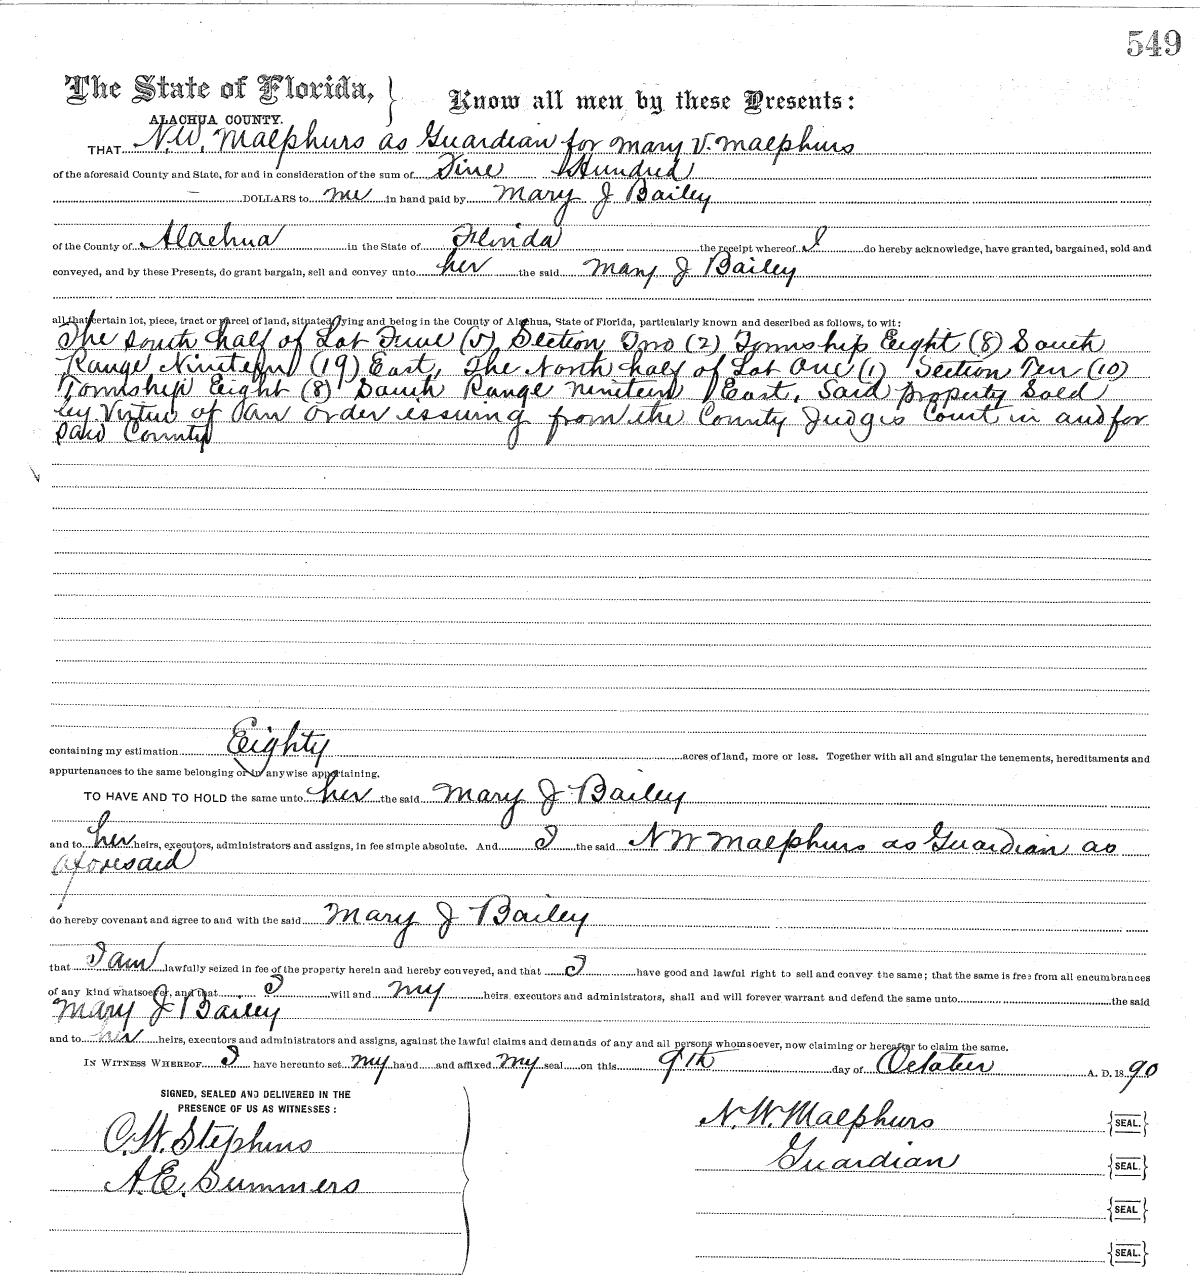 549
The State of Florida, } Know all men by these Presents:
ALACHUA COUNTY.
THAT N.W. Malphurs as Guardian for Mary V. Malphurs
of the aforesaid County and State, for and in consideration of the sum of Five Hundred
DOLLARS to me in hand paid by Mary J Bailey
of the County of Alachua in the State of Florida the receipt whereof I do hereby acknowledge, have granted, bargained, sold and
conveyed, and by these Presents, do grant bargain, sell and convey unto her the said Mary J Bailey
all that certain lot, piece, tract or parcel of land, situated lying and being in the County of Alachua, State of Florida, particularly known and described as follows, to wit:
The South half of Lot Five (5) Section Two (2) Township Eight (8) South
Range Nineteen (19) East, The North half of Lot One (1) Section Ten (10)
Township Eight (8) South Range Nineteen East, Said property Sold
by Virtue of an order issuing from the County Judges Court in and for
said County
containing my estimation Eighty acres of land, more or less. Together with all and singular the tenements, hereditaments and
appurtenances to the same belonging or in anywise appertaining.
TO HAVE AND TO HOLD the same unto her the said Mary J Bailey
and to her heirs, executors, administrators and assigns, in fee simple absolute. And I the said N W Malphurs as Guardian as
aforesaid
do hereby covenant and agree to and with the said Mary J Bailey
that I am lawfully seized in fee of the property herein and hereby conveyed, and that I have good and lawful right to sell and convey the same; that the same is free from all encumbrances
of any kind whatsoever, and that I will and my heirs executors and administrators, shall and will forever warrant and defend the same unto the said
Mary J Bailey
and to her heirs, executors and administrators and assigns, against the lawful claims and demands of any and all persons whomsoever, now claiming or hereafter to claim the same.
IN WITNESS WHEREOF I have hereunto set my hand and affixed my seal on this 9th day of October A. D. 1890
SIGNED, SEALED AND DELIVERED IN THE
PRESENCE OF US AS WITNESSES:
C.W. Stephens
A.E. Summers
N.W. Malphurs {SEAL.}
Guardian {SEAL.}
{SEAL.}
{SEAL.}